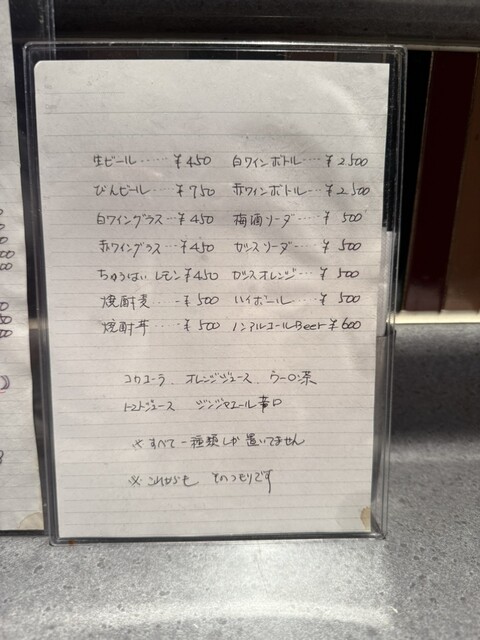 生ビール……¥450 白ワインボトル…¥2500
びんビール…¥750 赤ワインボトル…¥2500
白ワイングラス…¥450 梅酒ソーダ…¥500
赤ワイングラス…¥450 カシスソーダ…¥500
ちゅうはいレモン¥450 カシスオレンジ…¥500
焼酎麦…¥500 ハイボール…¥500
焼酎芋…¥500 ノンアルコールBeer¥600
コカコーラ、オレンジジュース、ウーロン茶
トマトジュース ジンジャエール辛口
※すべて一種類しか置いてません
※これからも そのつもりです